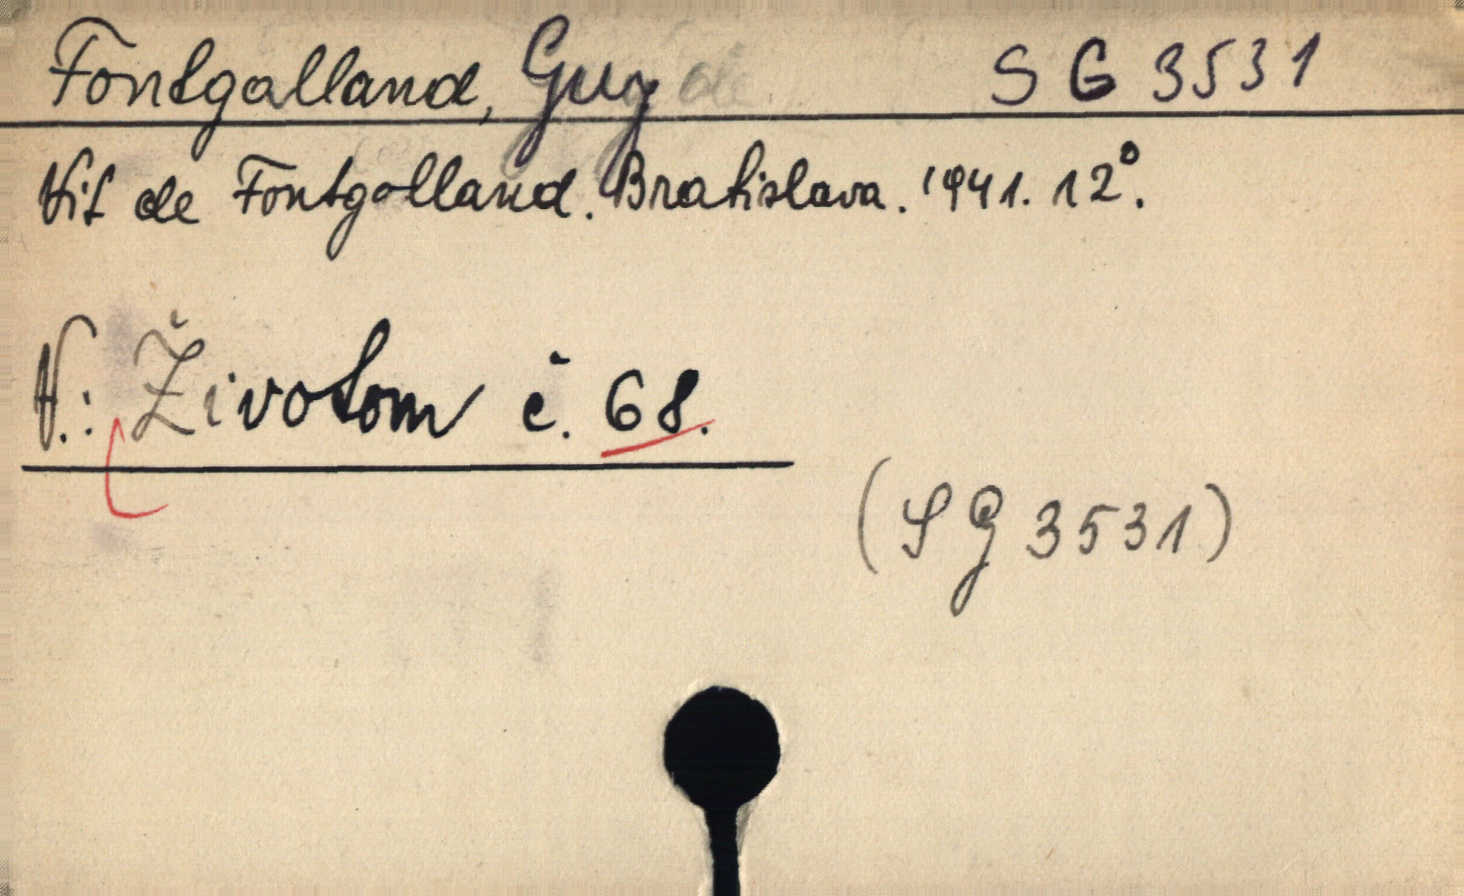 Fontgalland, Guy de SG 3531
Vít de Fontgolland. Bratislava. 1941. 12°.
V.: Životom č. 68.
(SG 3531)